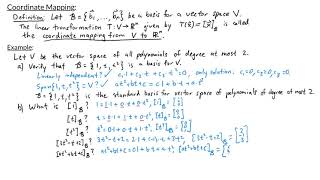 Coordinate Mapping:
Definition: Let B = {b⃗₁, ..., b⃗ₙ} be a basis for a vector space V.
The linear transformation T: V → ℝⁿ given by T(x⃗) = [x⃗]_B is called
the coordinate mapping from V to ℝⁿ.
Example:
Let V be the vector space of all polynomials of degree at most 2.
a) Verify that B = {1, t, t²} is a basis for V.
Linearly independent? ✓ c₁1 + c₂t + c₃t² = 0, only solution: c₁=0, c₂=0, c₃=0.
Span{1, t, t²} = V? ✓ at²+bt+c = c1+bt+at²
B = {1, t, t²} is the standard basis for vector space of polynomials of degree at most 2.
b) What is [1]_B? 1 = 1·1+0·t+0·t², [1]_B =
[t]_B? t = 0·1+1·t+0·t², [t]_B =
[t²]_B? t² = 0·1+0·t+1·t², [t²]_B =